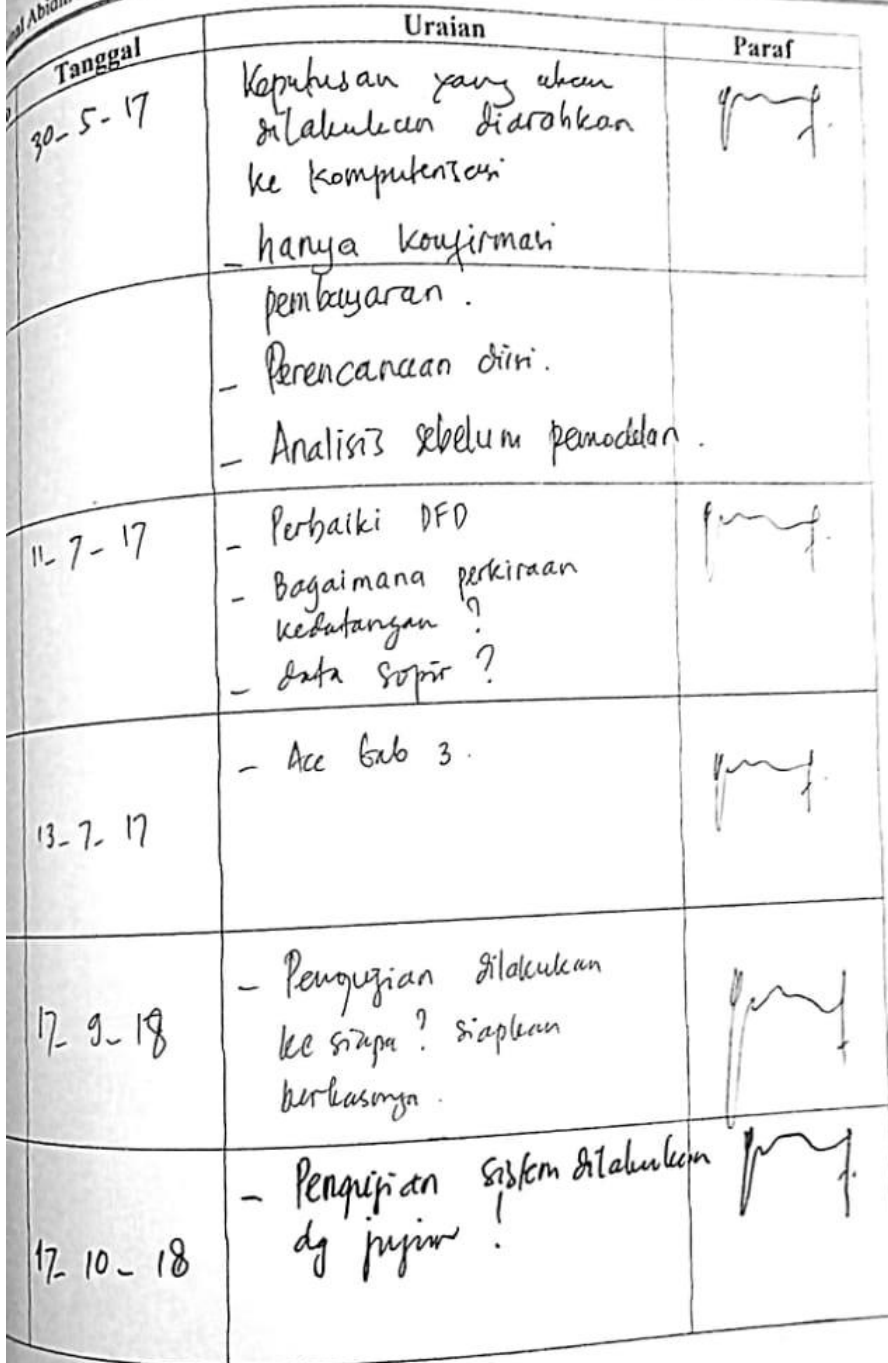 Tanggal Uraian Paraf
30-5-17 Keputusan yang akan
dilakukan diarahkan
ke komputerisasi
- hanya konfirmasi
pembayaran.
- Perencanaan
- Analisis sebelum pemodelan.
11-7-17 - Perbaiki DFD
- Bagaimana perkiraan
kedatangan ?
- data sopir ?
13-7-17 - Acc bab 3.
17-9-18 - Pengujian dilakukan
ke siapa ? siapkan
berkasnya.
17-10-18 - Pengujian sistem dilakukan
dg jujur !